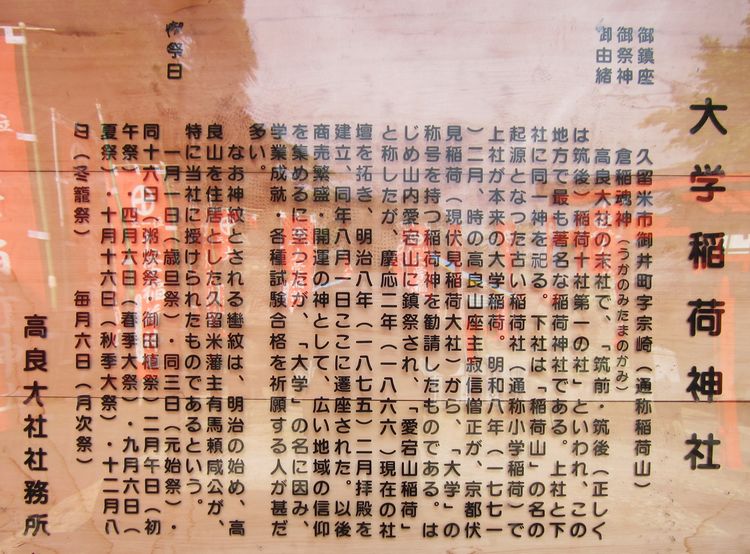 大学稲荷神社
御鎮座　久留米市御井町字宗崎（通称稲荷山）
御祭神　倉稲魂神（うかのみたまのかみ）
御由緒　高良大社の末社で、「筑前・筑後（正しく
は筑後）稲荷十社第一の社」といわれ、この
地方で最も著名な稲荷神社である。上社と下
社に同一神を祀る。下社は「稲荷山」の名の
起源となった古い稲荷社（通称小学稲荷）で
上社が本来の大学稲荷。明和八年（一七七一
）二月、時の高良山座主寂信僧正が、京都伏
見稲荷（現伏見稲荷大社）から、「大学」の
称号を持つ稲荷神を勧請したものである。は
じめ山内愛宕山に鎮祭され、「愛宕山稲荷」
と称したが、慶応二年（一八六六）現在の社
壇を拓き、明治八年（一八七五）二月拝殿を
建立、同年八月一日ここに遷座された。以後
商売繁盛・開運の神として、広い地域の信仰
を集めるに至ったが、「大学」の名に因み、
学業成就・各種試験合格を祈願する人が甚だ
多い。
なお神紋とされる轡紋は、明治の始め、高
良山を住居とした久留米藩主有馬頼咸公が、
特に当社に授けられたものであるという。
御祭日　一月一日（歳旦祭）・同三日（元始祭）・
同十六日（粥炊祭・御田植祭）二月午日（初
午祭）・四月六日（春季大祭）・九月六日（
夏祭）・十月十六日（秋季大祭）・十二月八
日（冬籠祭）　毎月六日（月次祭）
高良大社社務所